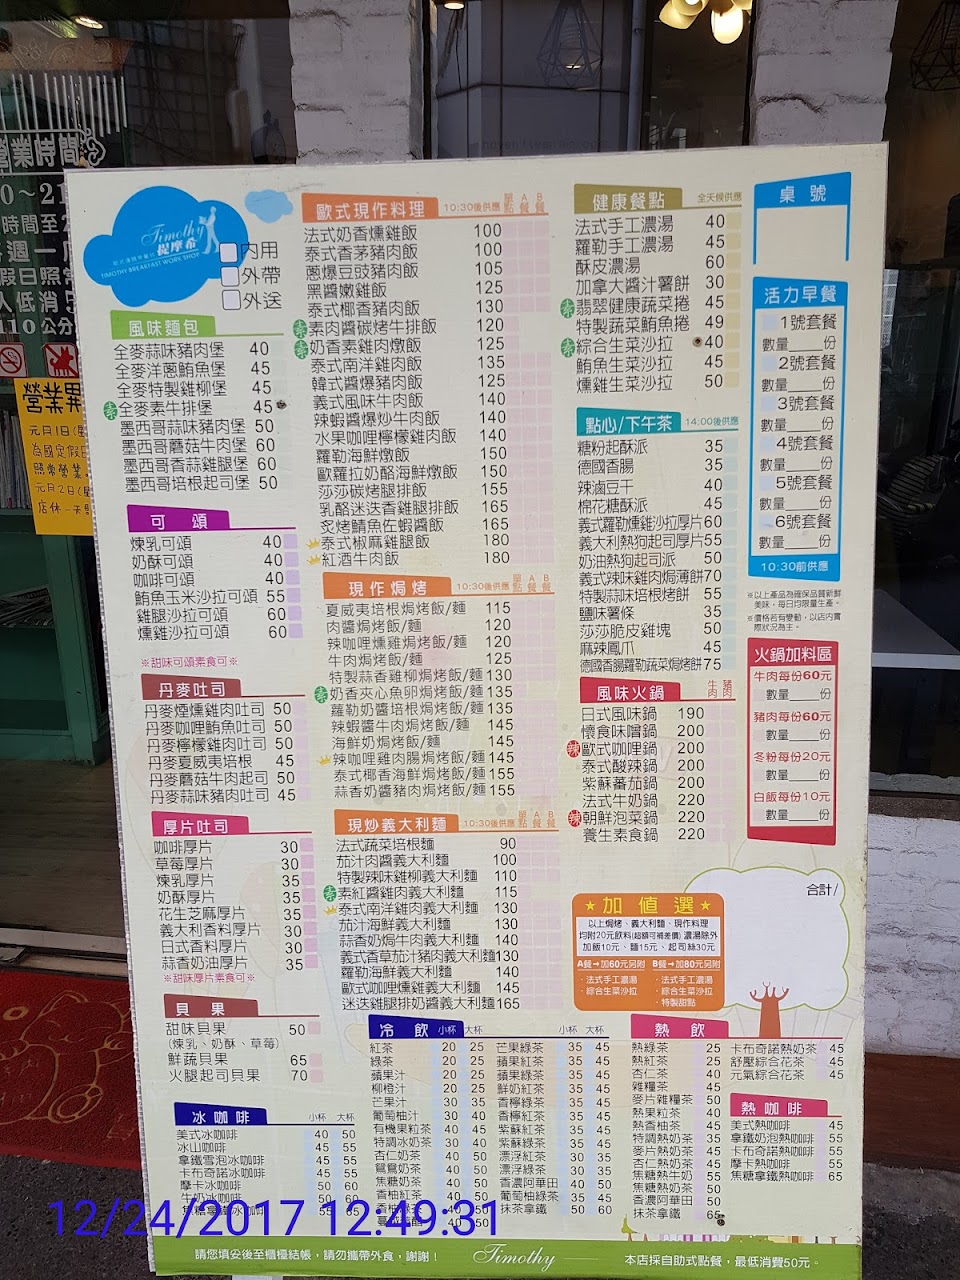 營業時間
營業異
元月1日
為國定假日
照常營業
元月2日
店休一天
Timothy
提摩希
TIMOTHY BREAKFAST WORK SHOP
內用
外帶
外送
風味麵包
全麥蒜味豬肉堡 40
全麥洋蔥鮪魚堡 45
全麥特製雞柳堡 45
素 全麥素牛排堡 45
墨西哥蒜味豬肉堡 50
墨西哥蘑菇牛肉堡 60
墨西哥香蒜雞腿堡 60
墨西哥培根起司堡 50
可頌
煉乳可頌 40
奶酥可頌 40
咖啡可頌 40
鮪魚玉米沙拉可頌 55
雞腿沙拉可頌 60
燻雞沙拉可頌 60
※甜味可頌素食可※
丹麥吐司
丹麥煙燻雞肉吐司 50
丹麥咖哩鮪魚吐司 50
丹麥檸檬雞肉吐司 50
丹麥夏威夷培根 45
丹麥蘑菇牛肉起司 50
丹麥蒜味豬肉吐司 45
厚片吐司
咖啡厚片 30
草莓厚片 30
煉乳厚片 35
奶酥厚片 35
花生芝麻厚片 35
義大利香料厚片 30
日式香料厚片 30
蒜香奶油厚片 35
※甜味厚片素食可※
貝果
甜味貝果 50
(煉乳、奶酥、草莓)
鮮蔬貝果 65
火腿起司貝果 70
冰咖啡 小杯 大杯
美式冰咖啡 40 50
冰山咖啡 45 55
拿鐵雪泡冰咖啡 45 55
卡布奇諾冰咖啡 45 55
摩卡冰咖啡 50 60
牛奶冰咖啡 50 60
歐式現作料理 10:30後供應 單點 A餐 B餐
法式奶香燻雞飯 100
泰式香茅豬肉飯 100
蔥爆豆豉豬肉飯 105
黑醬嫩雞飯 125
泰式椰香豬肉飯 130
素 素肉醬碳烤牛排飯 120
素 奶香素雞肉燉飯 125
泰式南洋雞肉飯 135
韓式醬爆豬肉飯 125
義式風味牛肉飯 140
辣蝦醬爆炒牛肉飯 140
水果咖哩檸檬雞肉飯 140
羅勒海鮮燉飯 150
歐羅拉奶酪海鮮燉飯 150
莎莎碳烤腿排飯 155
乳酪迷迭香雞腿排飯 165
炙烤鯖魚佐蝦醬飯 165
泰式椒麻雞腿飯 180
紅酒牛肉飯 180
現作焗烤 10:30後供應 單點 A餐 B餐
夏威夷培根焗烤飯/麵 115
肉醬焗烤飯/麵 120
辣咖哩燻雞焗烤飯/麵 120
牛肉焗烤飯/麵 125
特製蒜香雞柳焗烤飯/麵 130
素 奶香夾心魚卵焗烤飯/麵 135
蘿勒奶醬培根焗烤飯/麵 135
辣蝦醬牛肉焗烤飯/麵 145
海鮮奶焗烤飯/麵 145
辣咖哩雞肉腸焗烤飯/麵 145
泰式椰香海鮮焗烤飯/麵 155
蒜香奶醬豬肉焗烤飯/麵 155
現炒義大利麵 10:30後供應 單點 A餐 B餐
法式蔬菜培根麵 90
茄汁肉醬義大利麵 100
特製辣味雞柳義大利麵 110
素 素紅醬雞肉義大利麵 115
泰式南洋雞肉義大利麵 130
茄汁海鮮義大利麵 130
蒜香奶焗牛肉義大利麵 140
義式香草茄汁豬肉義大利麵 130
羅勒海鮮義大利麵 140
歐式咖哩燻雞義大利麵 145
迷迭雞腿排奶醬義大利麵 165
健康餐點 全天候供應
法式手工濃湯 40
蘿勒手工濃湯 45
酥皮濃湯 60
加拿大醬汁薯餅 30
素 翡翠健康蔬菜捲 45
特製蔬菜鮪魚捲 49
素 綜合生菜沙拉 40
鮪魚生菜沙拉 45
燻雞生菜沙拉 50
點心/下午茶 14:00後供應
糖粉起酥派 35
德國香腸 35
辣滷豆干 40
棉花糖酥派 45
義式蘿勒燻雞沙拉厚片 60
義大利熱狗起司厚片 55
奶油熱狗起司派 50
義式辣味雞肉焗薄餅 70
特製蒜味培根烤餅 55
鹽味薯條 35
莎莎脆皮雞塊 50
麻辣鳳爪 45
德國香腸蘿勒蔬菜焗烤餅 75
風味火鍋 牛肉 豬肉
日式風味鍋 190
懷食味噌鍋 200
辣 歐式咖哩鍋 200
泰式酸辣鍋 200
紫蘇蕃茄鍋 200
法式牛奶鍋 220
辣 朝鮮泡菜鍋 220
養生素食鍋 220
★加值選★
以上焗烤、義大利麵、現作料理
均附20元飲料(超額可補差價) 濃湯除外
加飯10元、麵15元、起司絲30元
A餐→加60元另附
·法式手工濃湯
·綜合生菜沙拉
B餐→加80元另附
·法式手工濃湯
·綜合生菜沙拉
特製甜點
桌號
活力早餐
1號套餐
數量____份
2號套餐
數量____份
3號套餐
數量____份
4號套餐
數量____份
5號套餐
數量____份
6號套餐
數量____份
10:30前供應
※以上產品為確保品質新鮮美味，每日均限量生產。
※價格若有變動，以店內實際狀況為主。
火鍋加料區
牛肉每份60元
數量____份
豬肉每份60元
數量____份
冬粉每份20元
數量____份
白飯每份10元
數量____份
合計/
冷飲 小杯 大杯 小杯 大杯
紅茶 20 25
綠茶 20 25
蘋果汁 20 25
柳橙汁 20 25
芒果汁 30 35
葡萄柚汁 30 40
有機果粒茶 40 45
特調冰奶茶 30 40
杏仁奶茶 40 50
鴛鴦奶茶 40 50
焦糖奶茶 40 50
香柚綠茶 40 50
芒果綠茶 35 45
蘋果紅茶 35 45
蘋果綠茶 35 45
鮮奶紅茶 35 45
香檸綠茶 35 45
香檸紅茶 35 45
紫蘇紅茶 35 45
紫蘇綠茶 35 45
漂浮紅茶 30 35
漂浮綠茶 30 35
香濃阿華田 40 50
葡萄柚綠茶 35 45
抹茶拿鐵 50 60
熱飲
熱綠茶 25
熱紅茶 25
杏仁茶 40
雜糧茶 45
麥片雜糧茶 50
熱果粒茶 40
熱香柚茶 45
特調熱奶茶 35
麥片熱奶茶 45
杏仁熱奶茶 45
焦糖熱牛奶 55
焦糖熱奶茶 50
香濃阿華田 50
抹茶拿鐵 65
卡布奇諾熱奶茶 45
舒壓綜合花茶 45
元氣綜合花茶 45
熱咖啡
美式熱咖啡 45
拿鐵奶泡熱咖啡 55
卡布奇諾熱咖啡 55
摩卡熱咖啡 55
焦糖拿鐵熱咖啡 65
請您填妥後至櫃檯結帳，請勿攜帶外食，謝謝！ Timothy 本店採自助式點餐，最低消費50元。
12/24/2017 12:49:31